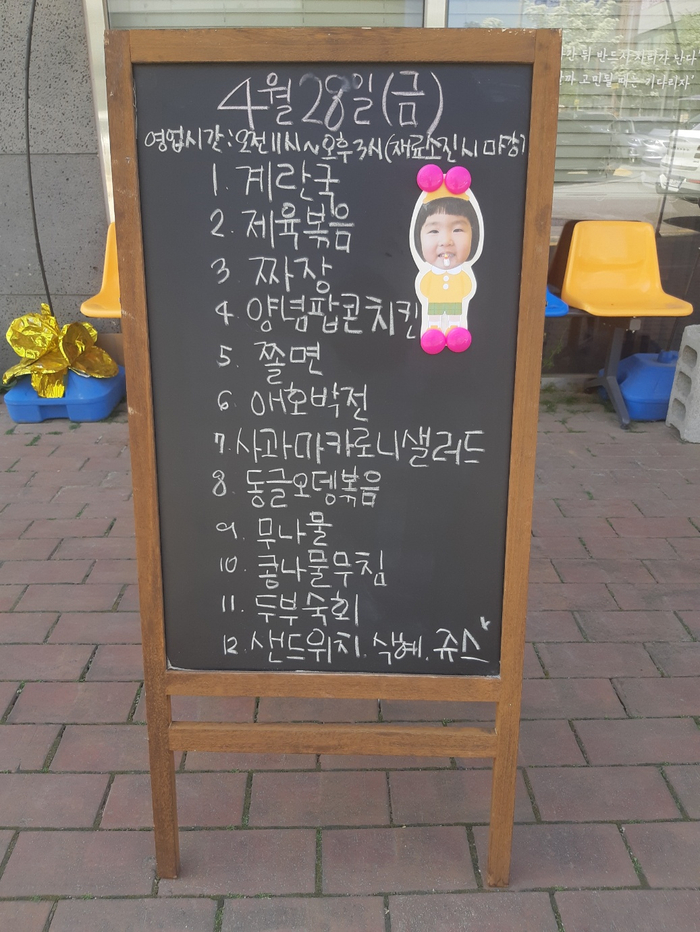 4월 28일 (금)
영업시간: 오전 11시 ~ 오후 3시 (재료소진시 마감)
1. 계란국
2. 제육볶음
3. 짜장
4. 양념팝콘치킨
5. 쫄면
6. 애호박전
7. 사과마카로니샐러드
8. 동글오뎅볶음
9. 무나물
10. 콩나물무침
11. 두부숙회
12. 샌드위치. 식혜. 쥬스